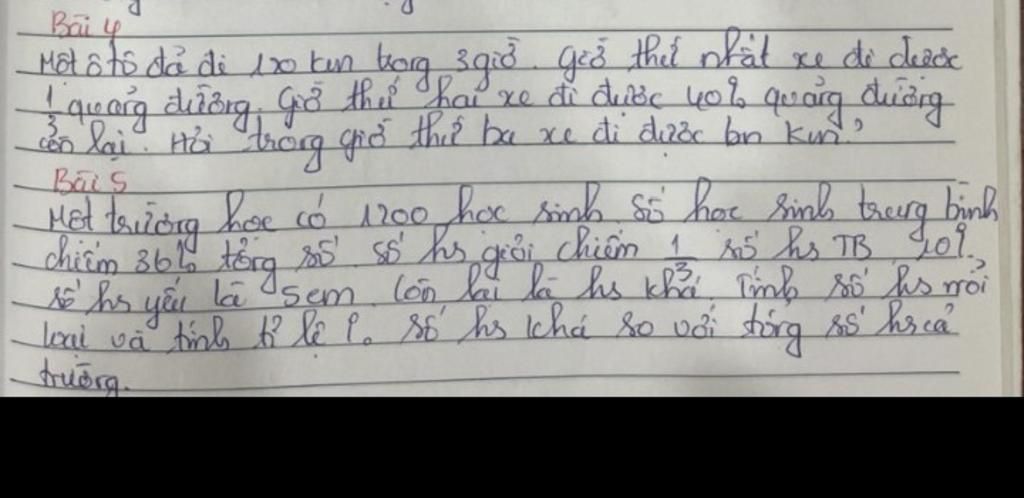 Bài 4
Một ô tô đã đi 120 km trong 3 giờ. Giờ thứ nhất xe đi được
1/3 quảng đường. Giờ thứ hai xe đi được 40% quảng đường
còn lại. Hỏi trong giờ thứ ba xe đi được bn km?
Bài 5
Một trường học có 1200 học sinh. Số học sinh trung bình
chiếm 36% tổng số. số hs giỏi chiếm 1/3 số hs TB 20%
số hs yếu là 5em. Còn lại là hs khá. Tính số hs mỗi
loại và tính tỉ lệ %. số hs khá so với tổng số hs cả
trường.